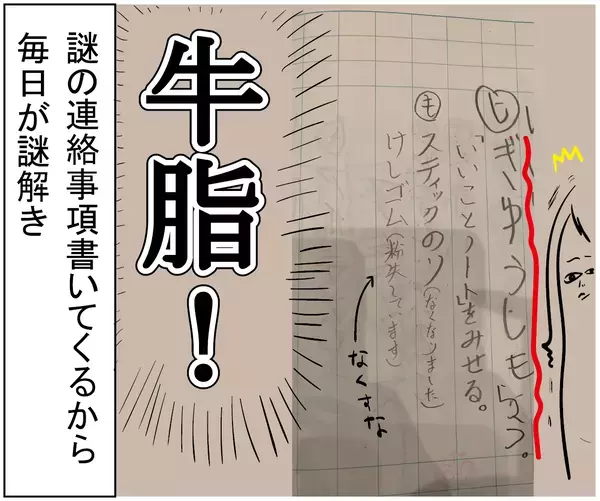 ぎゅうしもらう。
「いいことノート」をみせる。
も スティックのり(なくなりました)
けしゴム(紛失しています)
なくすな
牛脂！
謎の連絡事項書いてくるから
毎日が謎解き